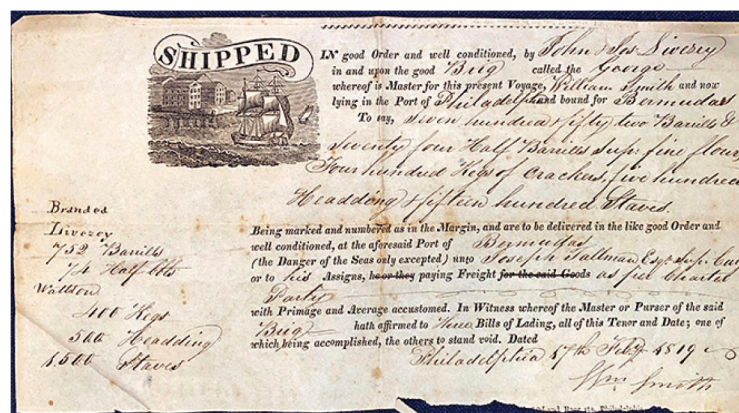 SHIPPED
IN good Order and well conditioned, by John & Jos Livezey
in and upon the good Brig called the George
whereof is Master for this present Voyage, William Smith and now
lying in the Port of Philadelphia and bound for Bermudas
To say, Seven hundred & fifty two Barrills &
Seventy four Half Barrills Supr fine flour,
Four hundred Kegs of Crackers, five hundred
Headding & fifteen hundred Staves.
Branded
Livezey
752 Barrills
74 Half bbls
Wattson
400 Kegs
500 Headding
1,500 Staves
Being marked and numbered as in the Margin, and are to be delivered in the like good Order and
well conditioned, at the aforesaid Port of Bermudas
(the Danger of the Seas only excepted) unto Joseph Tallman Esqr Supr Car
or to his Assigns, he or they paying Freight for the said Goods as per Charter
Party
with Primage and Average accustomed. In Witness whereof the Master or Purser of the said
Brig hath affirmed to Three Bills of Lading, all of this Tenor and Date; one of
which being accomplished, the others to stand void. Dated
Philadelphia 17th Feby 1819
Wm Smith